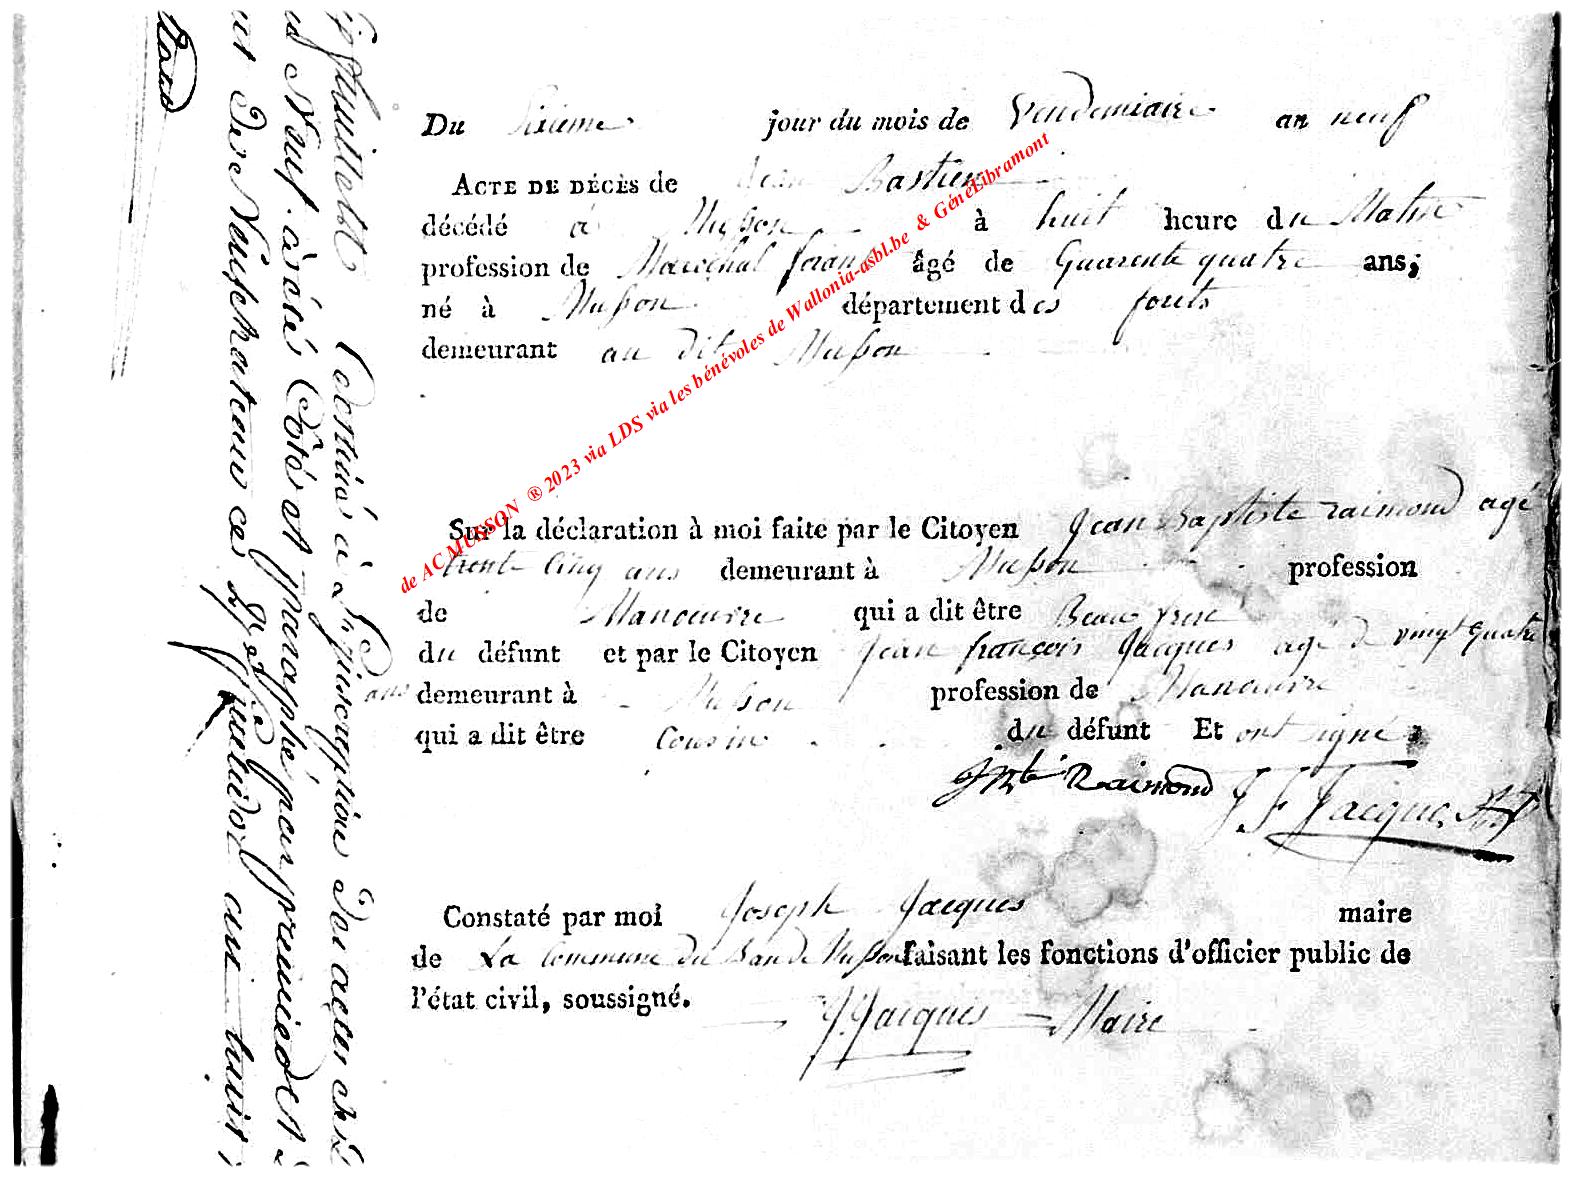 Du Sixieme jour du mois de Vendemiaire an neuf
ACTE DE DÉCÈS de Jean Bastien
décédé à Musson à huit heure du Matin
profession de Marechal ferant âgé de Quarente quatre ans;
né à Musson département des forets
demeurant au dit Musson
Sur la déclaration à moi faite par le Citoyen Jean Baptiste raimond agé
trente Cinq ans demeurant à Musson profession
de Manoeuvre qui a dit être Beau frere
du défunt et par le Citoyen Jean françois Jacques agé de vingt quatre
ans demeurant à Musson profession de Manoeuvre
qui a dit être Cousin du défunt Et ont signé
J Bte Raimond J F Jacque
Constaté par moi Joseph Jacques maire
de La Commune du Ban de Musson faisant les fonctions d'officier public de
l'état civil, soussigné.
J. Jacques Maire
feuillets Destinés à L'inscription des actes de
Neuf. arété Coté et paraphé par premier et
De Neufchateau ce fructidor an huit
de AC MUSSON ® 2023 via LDS via les bénévoles de Wallonia-asbl.be & GénéLibramont